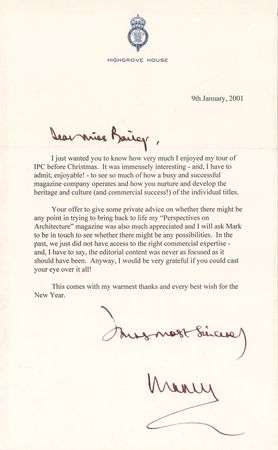 HIGHGROVE HOUSE
9th January, 2001
Dear Miss Bailey,
I just wanted you to know how very much I enjoyed my tour of
IPC before Christmas. It was immensely interesting - and, I have to
admit, enjoyable! - to see so much of how a busy and successful
magazine company operates and how you nurture and develop the
heritage and culture (and commercial success!) of the individual titles.
Your offer to give some private advice on whether there might be
any point in trying to bring back to life my “Perspectives on
Architecture” magazine was also much appreciated and I will ask Mark
to be in touch to see whether there might be any possibilities. In the
past, we just did not have access to the right commercial expertise -
and, I have to say, the editorial content was never as focused as it
should have been. Anyway, I would be very grateful if you could cast
your eye over it all!
This comes with my warmest thanks and every best wish for the
New Year.
Yours most sincerely